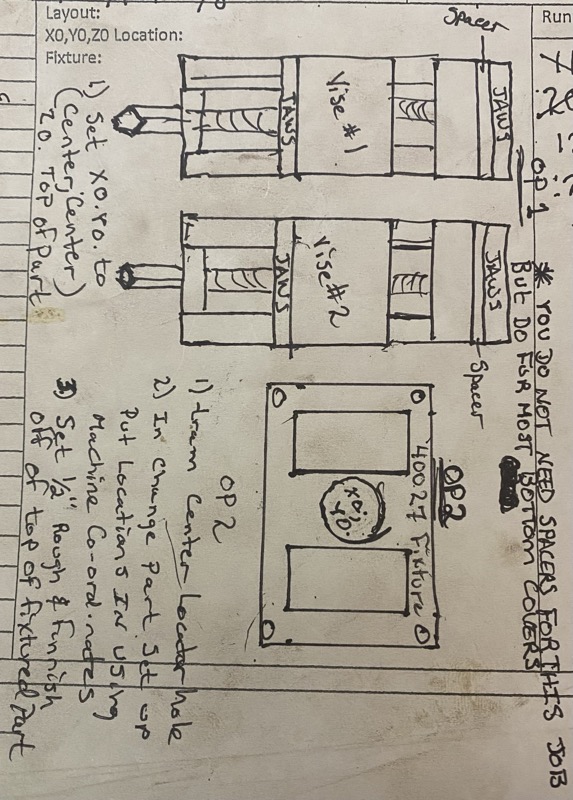 Layout:
X0,Y0,Z0 Location:
Fixture:
Run
* YOU DO NOT NEED SPACERS FOR THIS JOB
BUT DO FOR MOST BOTTOM COVERS
OP 1
Spacer
JAWS
Vise #1
JAWS
JAWS
Spacer
Vise #2
JAWS
1) Set X0.Y0. to
(Center, Center)
Z0. TOP of Part
OP2
40027 Fixture
X0.
Y0.
OP 2
1) tram Center Locator hole
2) In Change Part Set up
Put Locations IN Using
Machine Co-ordinates
3) Set 1/2" Rough & Finnish
off of top of fixtured Part